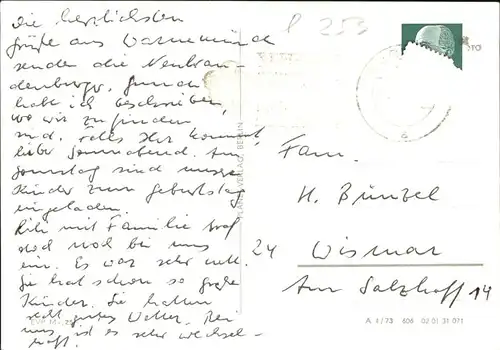 Die herzlichsten
Grüße aus Warnemünde
senden die Neubran-
denburger.
habt ich beschrieben,
wo wir zu finden
sind. Falls Ihr kommt,
lieber Sonnabend. Am
Sonntag sind unsere
Kinder zum Geburtstag
eingeladen.
mit Familie traf
noch bei uns
ein. Es war sehr nett.
Sie hat schon so große
Kinder. Sie hatten
recht gutes Wetter. Bei
uns ist es sehr wechsel-
haft.
P 253
Fam.
H. Bünzel
24 Wismar
Am Salzhaff 14
VERLAG BERLIN
EVP M
A 1/73 606 02 01 31 071